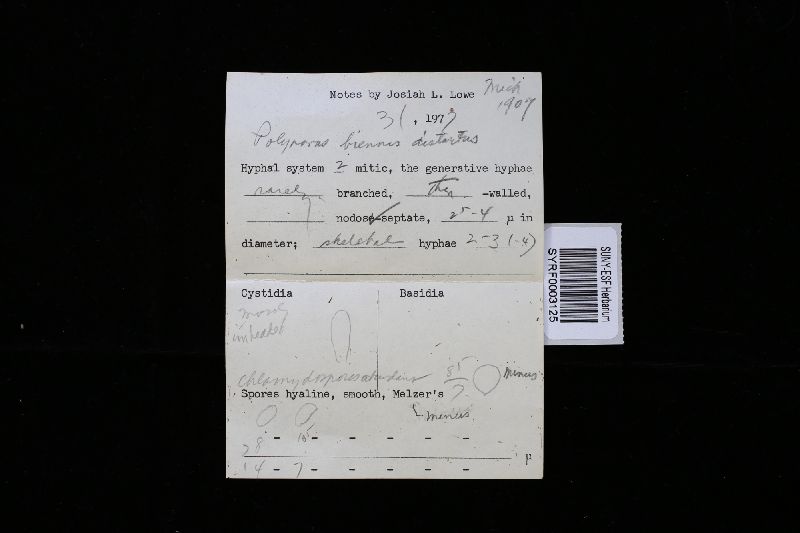 Notes by Josiah L. Lowe Mich
1907
31, 1977
Polyporus biennis distortus
Hyphal system 2 mitic, the generative hyphae
rarely branched, thin -walled,
nodose-septate, 2⁵-4 µ in
diameter; skeletal hyphae 2-3 (-4)
Cystidia Basidia
imbedded
Chlamydospores abundant 8⁵ minus
7
Spores hyaline, smooth, Melzer's
minus
- - - - - -
µ
14 - 7 - - - - -
SUNY-ESF Herbarium
SYRF0003125